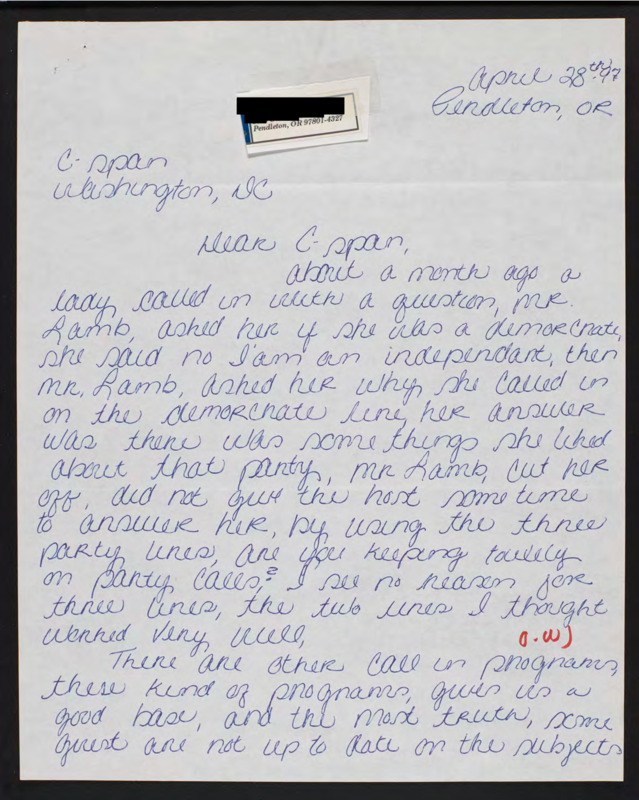 April 28th 97
Pendleton, OR
Pendleton, OR 97801-4327
C-span
Washington, DC
Dear C-span,
about a month ago a
lady called in with a question, mr.
Lamb, asked her if she was a demorcrate,
she said no I'am an independant, then
mr. Lamb, asked her why she called in
on the demorcrate line, her answer
was there was some things she liked
about that party, mr Lamb, cut her
off, did not give the host some time
to answer her, by using the three
party lines, are you keeping
on party calls? I see no reason for
three lines, the two lines I thought
worked very well,
There are other call in programs,
these kind of programs, gives us a
good base, and the most truth, some
guest are not up to date on the subjects